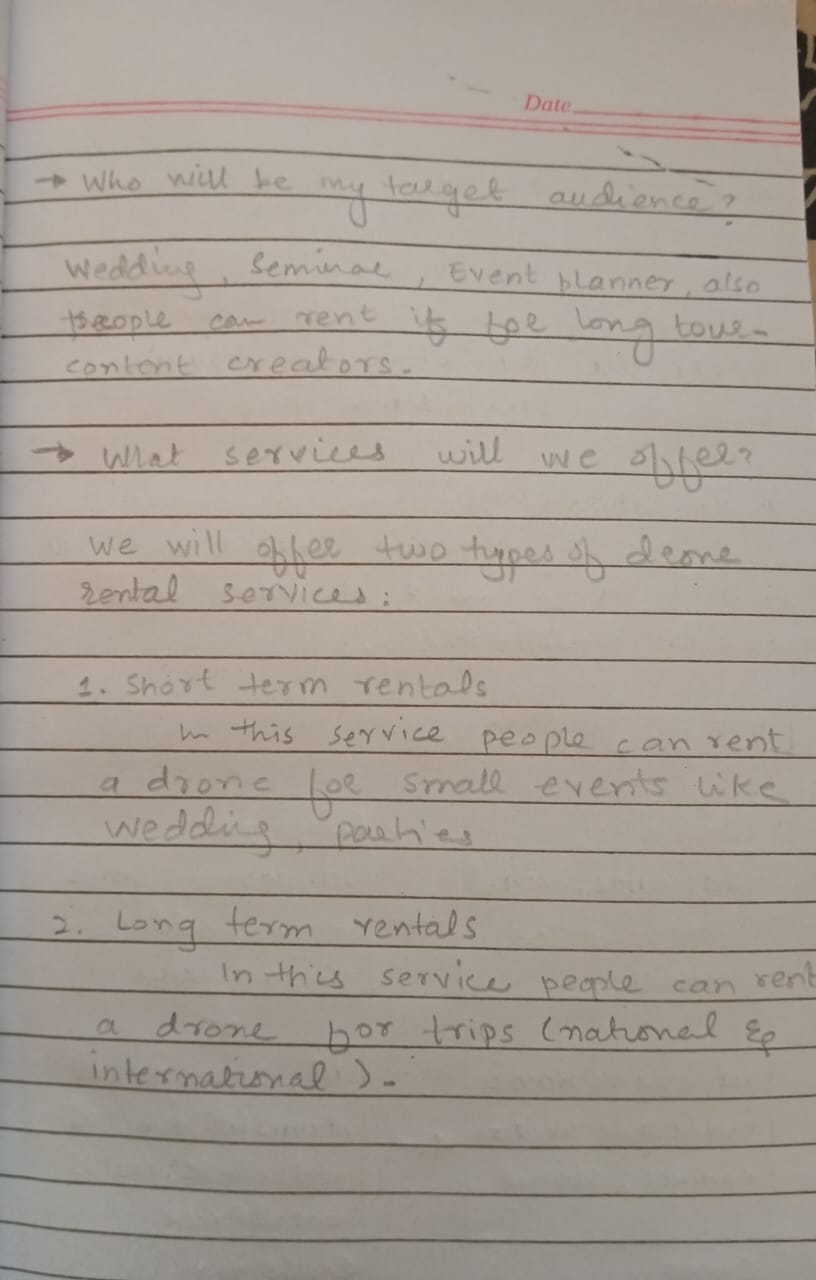 Date
→ Who will be my target audience?
Wedding, Seminar, Event planner, also
people can rent it for long tour-
content creators.
→ What services will we offer?
We will offer two types of drone
rental services:
1. Short term rentals
In this service people can rent
a drone for small events like
wedding, parties
2. Long term rentals
In this service people can rent
a drone for trips (national &
international).